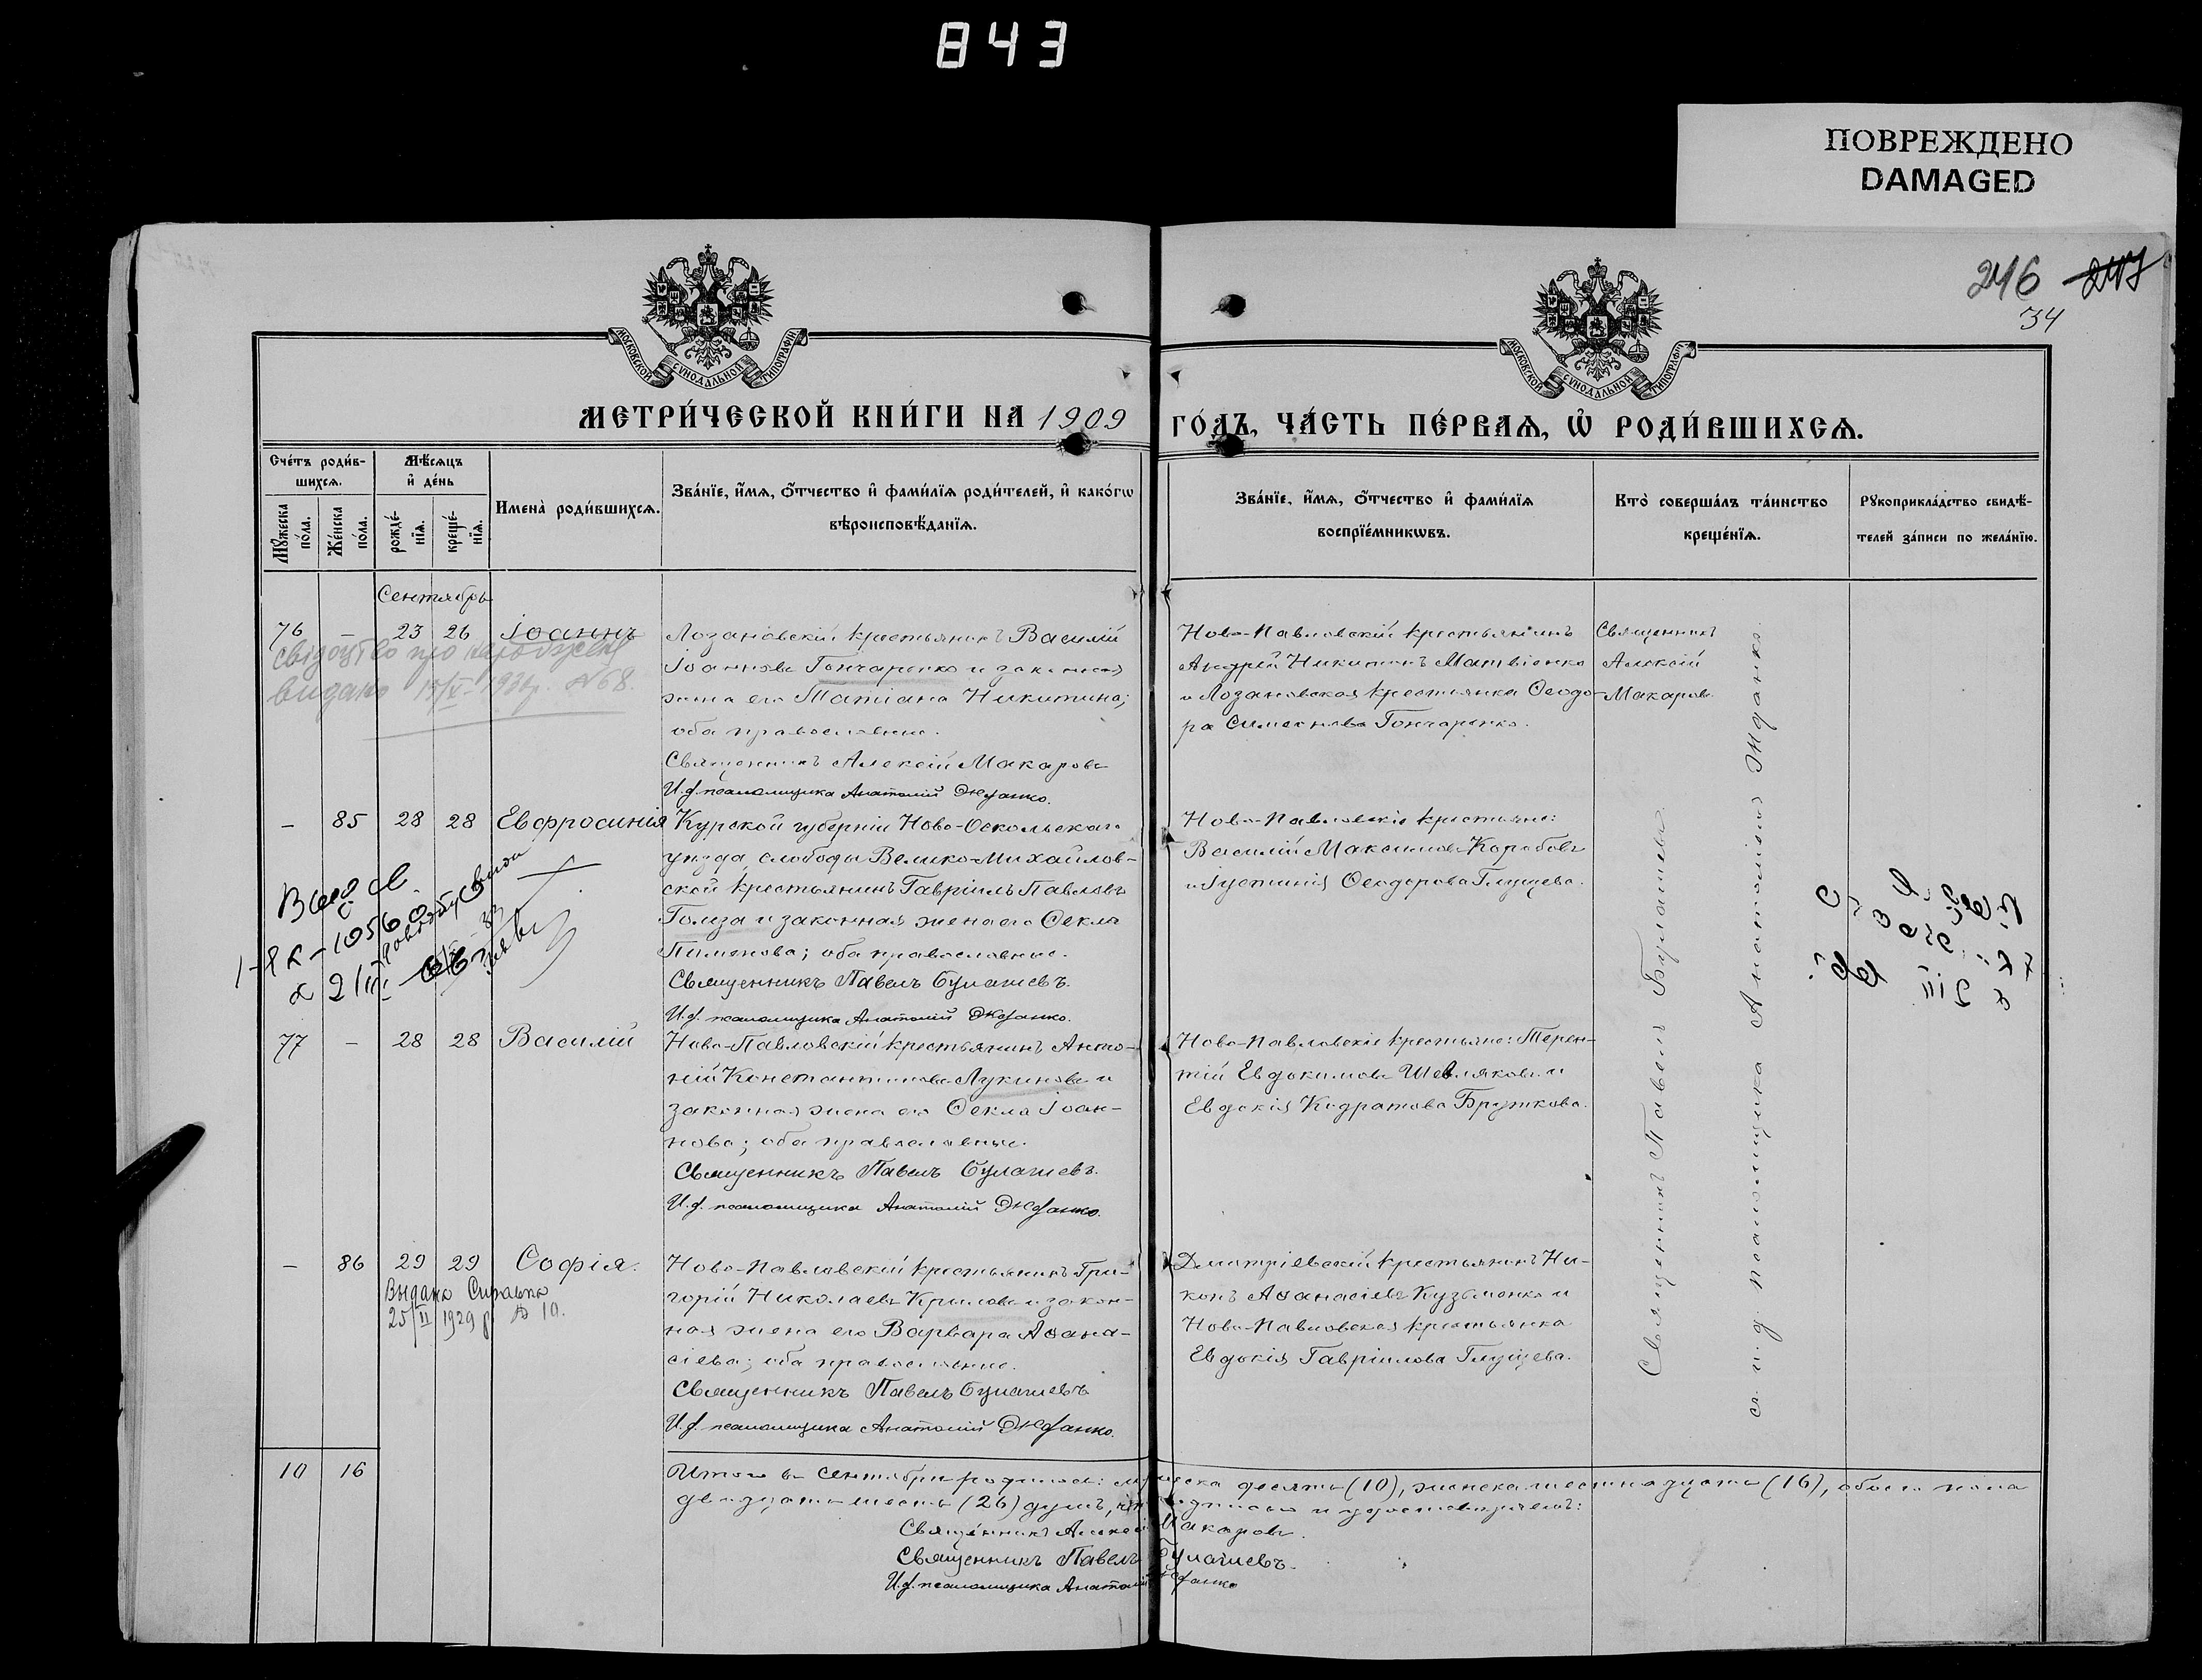 843
ПОВРЕЖДЕНО
DAMAGED
246 247
34
МОСКОВСКОЙ СѴНОДАЛЬНОЙ ТИПОГРАФІИ
МОСКОВСКОЙ СѴНОДАЛЬНОЙ ТИПОГРАФІИ
МЕТРИ́ЧЕСКОЙ КНИ́ГИ НА 1909 ГО́ДЪ, ЧА́СТЬ ПЕ́РВАѦ, Ѡ҆ РОДИ́ВШИХСѦ.
Сче́тъ роди́в-
шихсѧ.
Мꙋ́жеска по́ла.
Же́нска по́ла.
Мѣ́сѧцъ
и҆ де́нь
рожде́-
нїѧ.
креще́-
нїѧ.
Имена̀ роди́вшихсѧ.
Зва́нїе, и҆́мѧ, ѻ҆́тчество и҆ фами́лїѧ роди́телей, и҆ како́гѡ
вѣроисповѣ́данїѧ.
Зва́нїе, и҆́мѧ, ѻ҆́тчество и҆ фами́лїѧ
воспрїе́мникѡвъ.
Кто̀ соверша́лъ та́инство
креще́нїѧ.
Рꙋкоприкла́дство свидѣ́-
телей за́писи по жела́нїю.
Сентябрь
76 – 23 26 Іоаннъ
Лозановскій крестьянинъ Василій
Іоанновъ Гончаренко и законная
жена его Татіана Никитина;
оба православные.
Священникъ Алексій Макаровъ
И.д. псаломщика Анатолій Жданко.
Ново-Павловскій крестьянинъ
Андрей Никитинъ Матвіенко
и Лозановская крестьянка Ѳеодо-
ра Симеонова Гончаренко.
Священникъ
Алексій
Макаровъ
свідоцтво про народження
видано 15/V 193 р. №68.
– 85 28 28 Евфросинія
Курской губерніи Ново-Оскольскаго
уѣзда, слободы Велико-Михайлов-
ской крестьянинъ Гавріилъ Павловъ
Голиза и законная жена его Ѳекла
Пименова; оба православные.
Священникъ Павелъ Булашевъ.
И.д. псаломщика Анатолій Жданко.
Ново-Павловскіе крестьяне:
Василій Максимовъ Коробовъ
и Іустинія Ѳеодорова Глущева.
1056
77 – 28 28 Василій
Ново-Павловскій крестьянинъ Анто-
ній Константиновъ Лукиновъ и
законная жена его Ѳекла Іоан-
нова; оба православные.
Священникъ Павелъ Булашевъ.
И.д. псаломщика Анатолій Жданко.
Ново-Павловскіе крестьяне: Терен-
тій Евдокимовъ Шевляковъ и
Евдокія Кодратова Бруткова.
– 86 29 29 Софія.
Выдана Справка
25/II 1929 р № 10.
Ново-Павловскій крестьянинъ Гри-
горій Николаевъ Крыловъ и закон-
ная жена его Варвара Аѳана-
сіева; оба православные.
Священникъ Павелъ Булашевъ
И.д. псаломщика Анатолій Жданко.
Дмитріевскій крестьянинъ Ни-
конъ Аѳанасіевъ Кузьменко и
Ново-Павловская крестьянка
Евдокія Гавріилова Глущева.
Священникъ Павелъ Булашевъ
съ и.д. псаломщика Анатоліемъ Жданко.
10 16
Итого въ сентябрѣ родилось: мужеска десять (10), женска шестнадцать (16), обоего пола
двадцать шесть (26) душъ, что подписью и удостовѣряемъ:
Священникъ Алексій Макаровъ.
Священникъ Павелъ Булашевъ.
И.д. псаломщика Анатолій Жданко